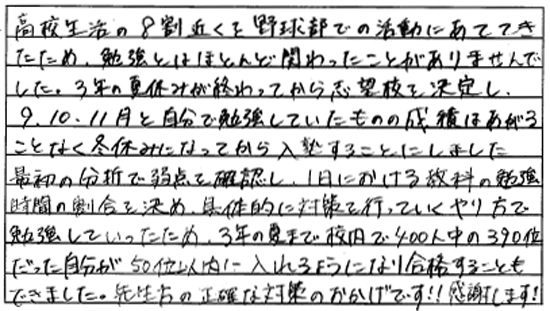 高校生活の8割近くを野球部での活動にあててき
たため、勉強とはほとんど関わったことがありませんで
した。3年の夏休みが終わってから志望校を決定し、
9、10、11月と自分で勉強していたものの成績はあがる
ことなく冬休みになってから入塾することにしました
最初の分析で弱点を確認し、1日における教科の勉強
時間の割合を決め、具体的に対策を行っていくやり方で
勉強していったため、3年の夏まで校内で400人中の390位
だった自分が50位以内に入れるようになり合格することも
できました。先生方の正確な対策のおかげです!!感謝します!